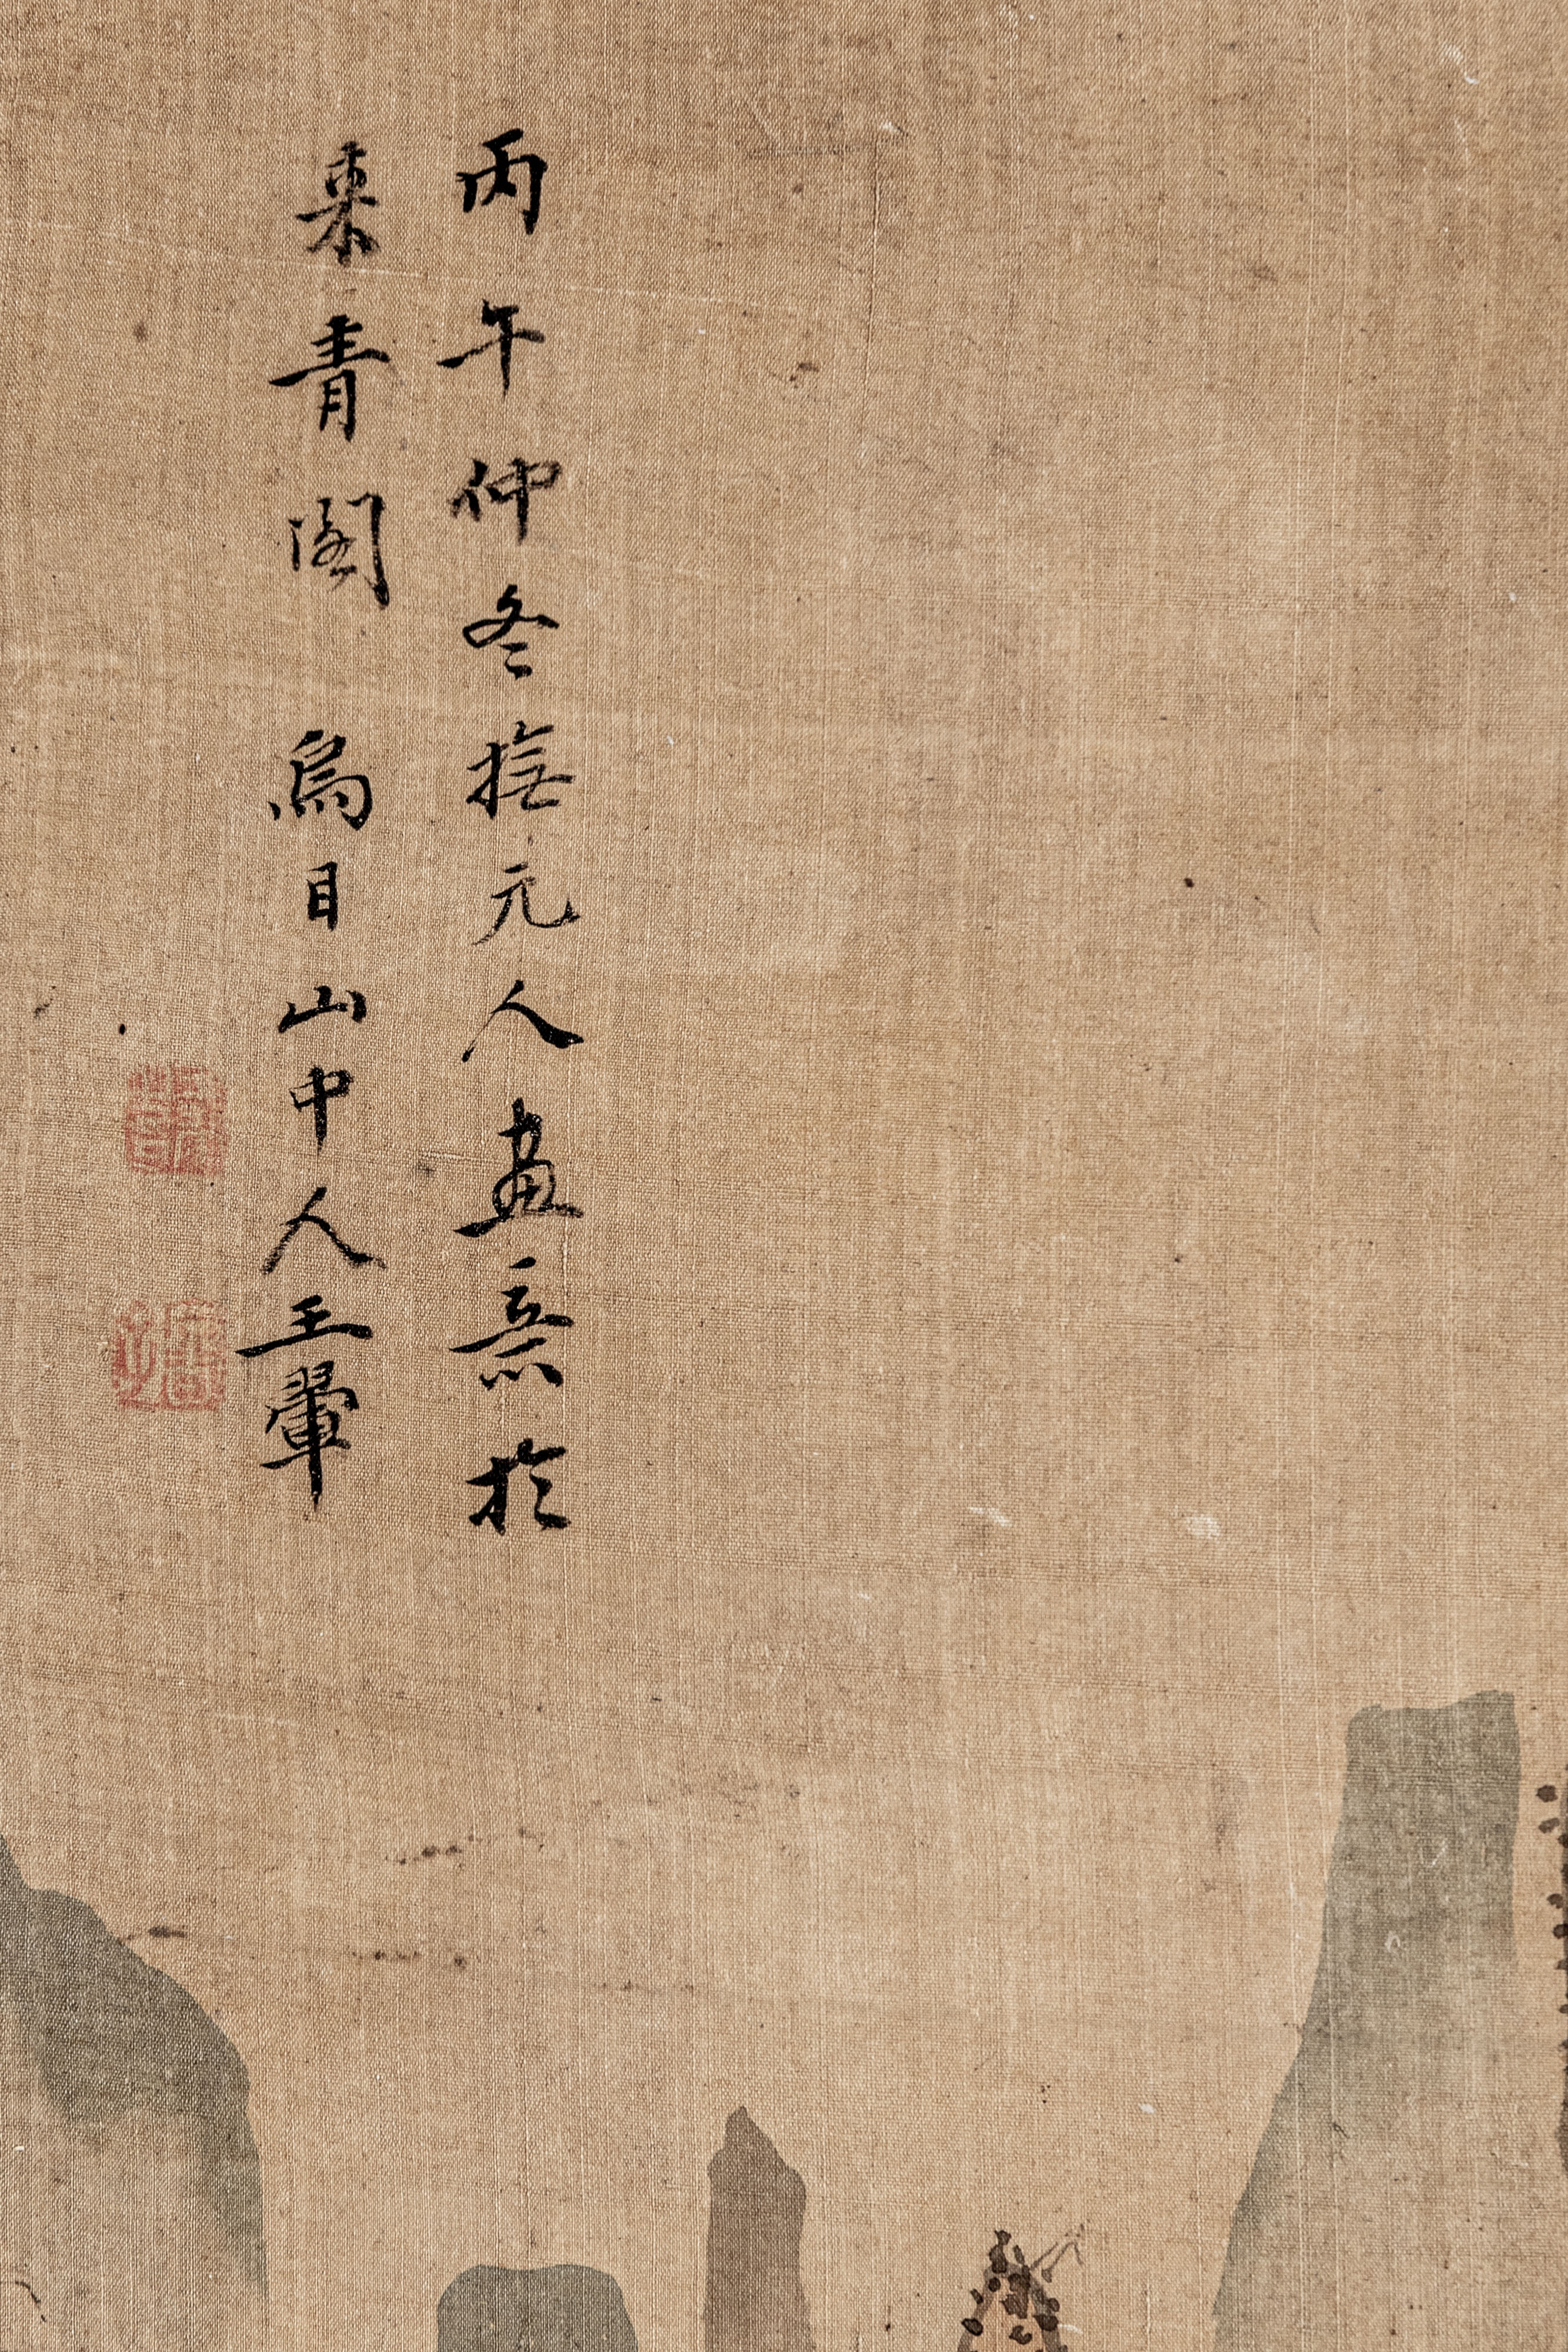 丙午仲冬撫元人畫意於
來青閣 烏目山中人王翬